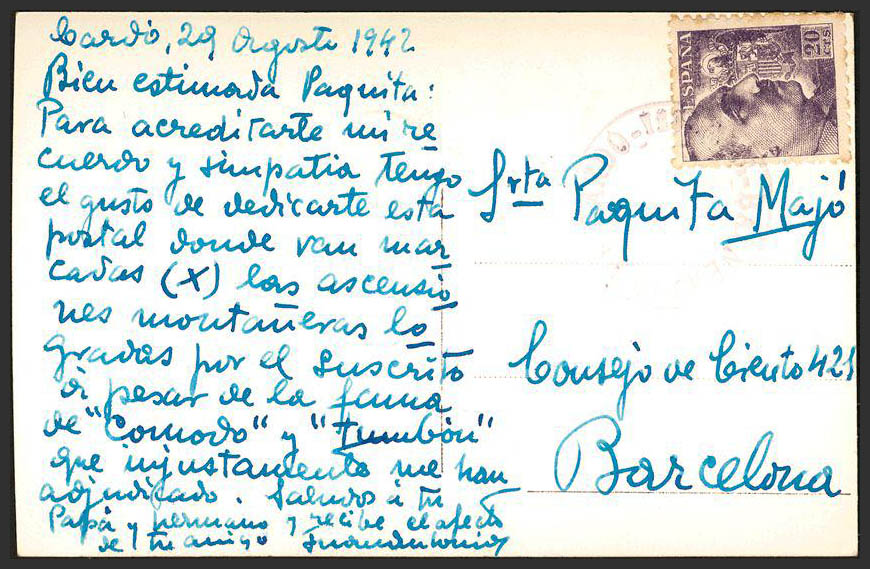 Cardó, 29 Agosto 1942
Bien estimada Paquita:
Para acreditarte mi re
cuerdo y simpatia tengo
el gusto de dedicarte esta
postal donde van mar
cadas (X) las ascensio
nes montañeras lo
gradas por el suscrito
a pesar de la fama
de "Comodo" y "tumbón"
que injustamente me han
adjudicado. Saludos a tu
Papá y hermano y recibe el afecto
de tu amigo Juan Antonio
ESPAÑA
20
CTS
Srta Paquita Majó
Consejo de Ciento 421
Barcelona